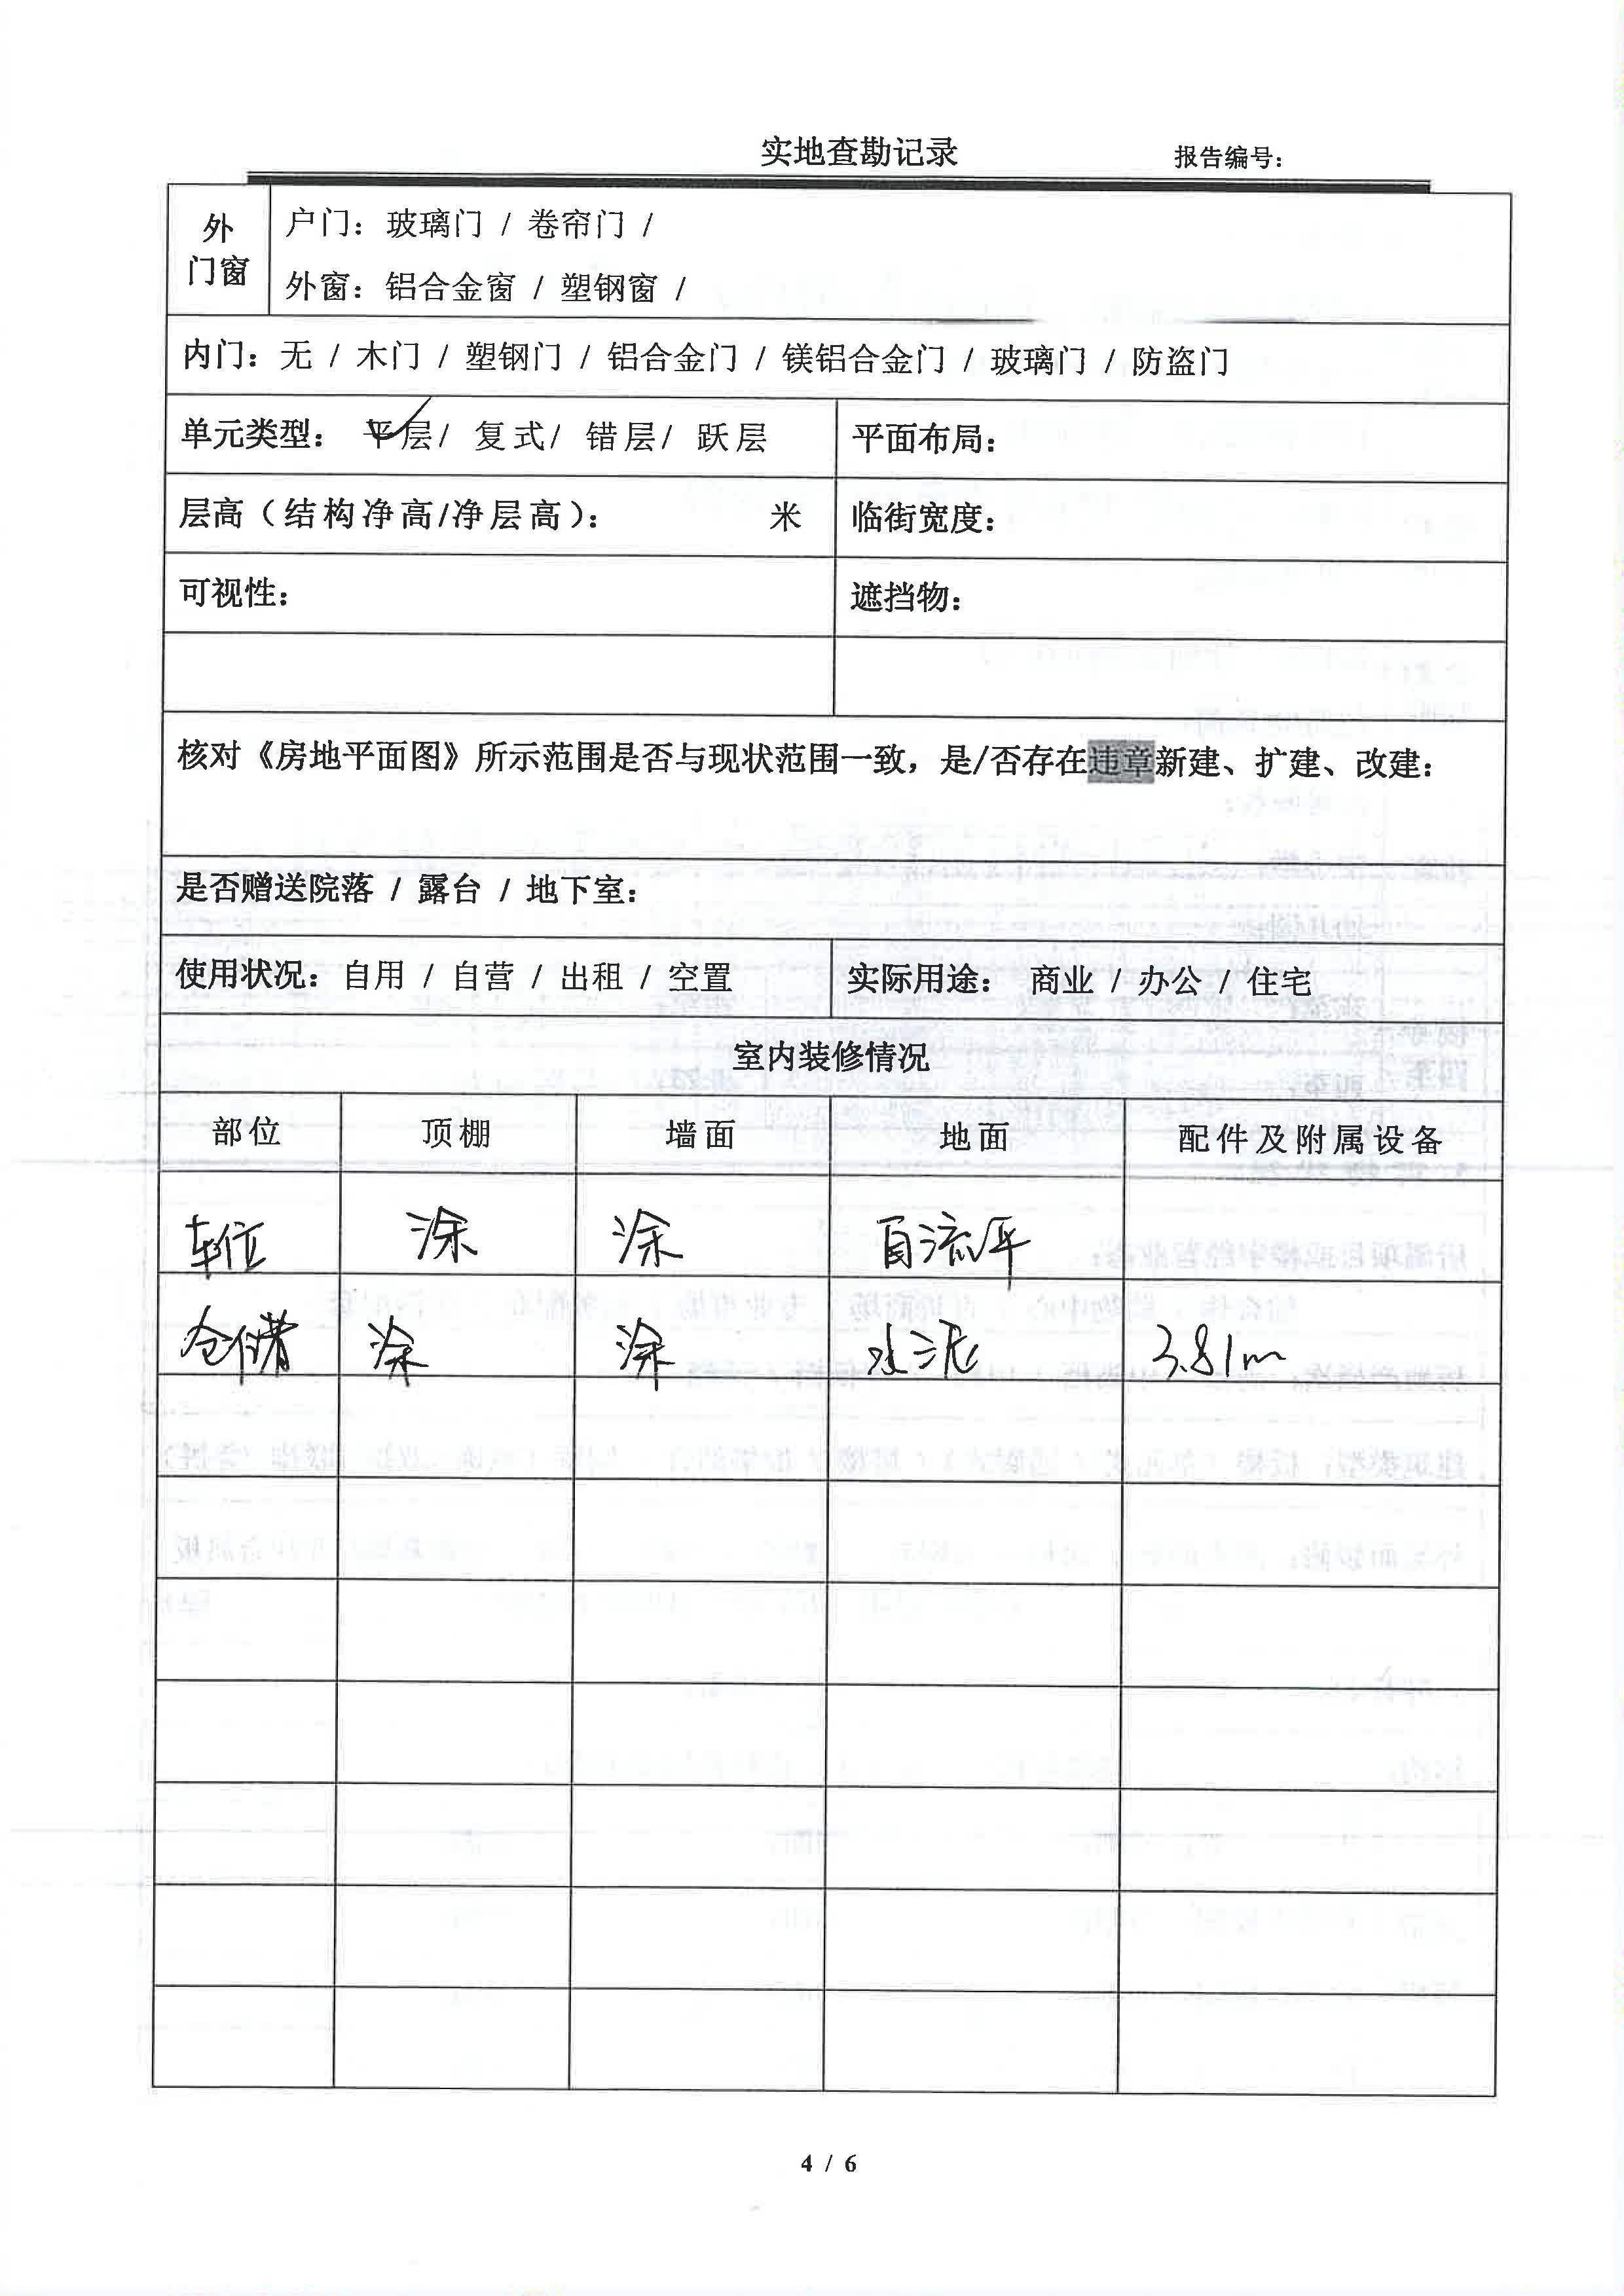 实地查勘记录 报告编号：
外门窗
户门：玻璃门 / 卷帘门 /
外窗：铝合金窗 / 塑钢窗 /
内门：无 / 木门 / 塑钢门 / 铝合金门 / 镁铝合金门 / 玻璃门 / 防盗门
单元类型： 平层/ 复式/ 错层/ 跃层 平面布局：
层高（结构净高/净层高）： 米 临街宽度：
可视性： 遮挡物：
核对《房地平面图》所示范围是否与现状范围一致，是/否存在违章新建、扩建、改建：
是否赠送院落 / 露台 / 地下室：
使用状况：自用 / 自营 / 出租 / 空置 实际用途： 商业 / 办公 / 住宅
室内装修情况
部位 顶棚 墙面 地面 配件及附属设备
车位 涂 涂 自流平
仓储 涂 涂 水泥 3.81m
4 / 6